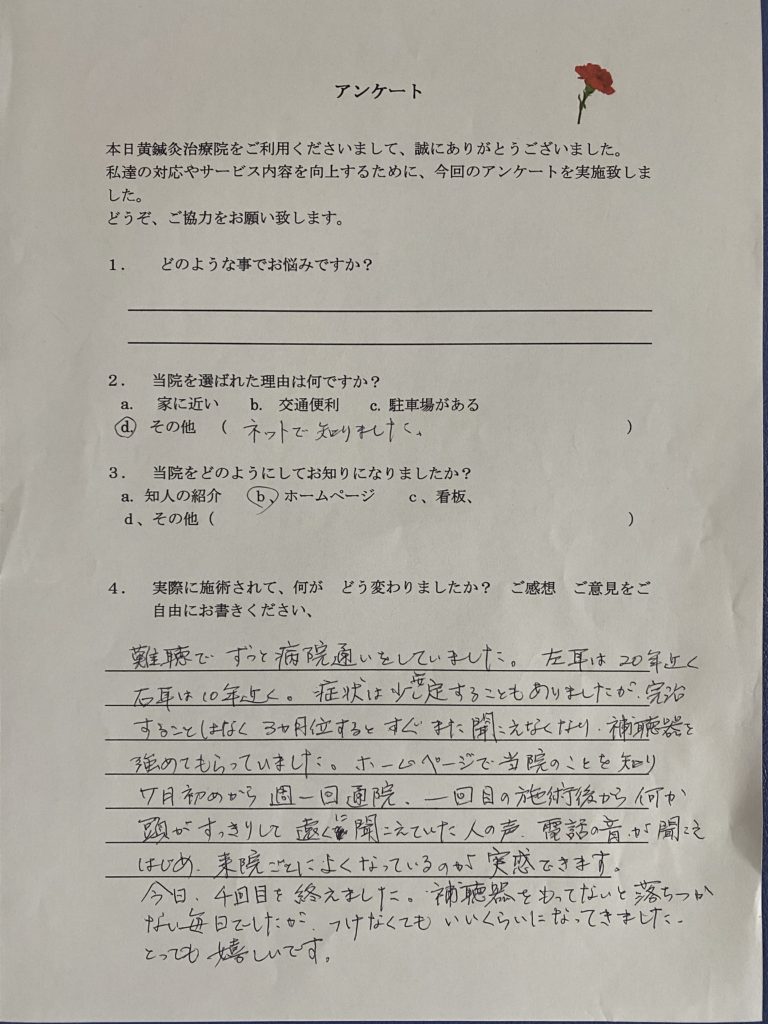 アンケート
本日黄鍼灸治療院をご利用くださいまして、誠にありがとうございました。
私達の対応やサービス内容を向上するために、今回のアンケートを実施致しま
した。
どうぞ、ご協力をお願い致します。
１． どのような事でお悩みですか？
２． 当院を選ばれた理由は何ですか？
a. 家に近い b. 交通便利 c. 駐車場がある
d. その他 （ ネットで知りました。 ）
３． 当院をどのようにしてお知りになりましたか？
a. 知人の紹介 b、ホームページ ｃ、看板、
ｄ、その他（ ）
４． 実際に施術されて、何が どう変わりましたか？ ご感想 ご意見をご
自由にお書きください、
難聴で ずっと病院通いをしていました。 左耳は20年近く
右耳は10年近く。 症状は少し安定することもありましたが、完治
することはなく 3ヵ月位すると すぐまた聞こえなくなり、補聴器を
強めてもらっていました。ホームページで当院のことを知り
7月初めから 週一回通院、一回目の施術後から 何か
頭がすっきりして 遠くに聞こえていた人の声、電話の音が聞こえ
はじめ、来院ごとによくなっているのが 実感できます。
今日、4回目を終えました。補聴器をもってないと落ちつか
ない毎日でしたが、つけなくても いいくらいになってきました。
とっても嬉しいです。